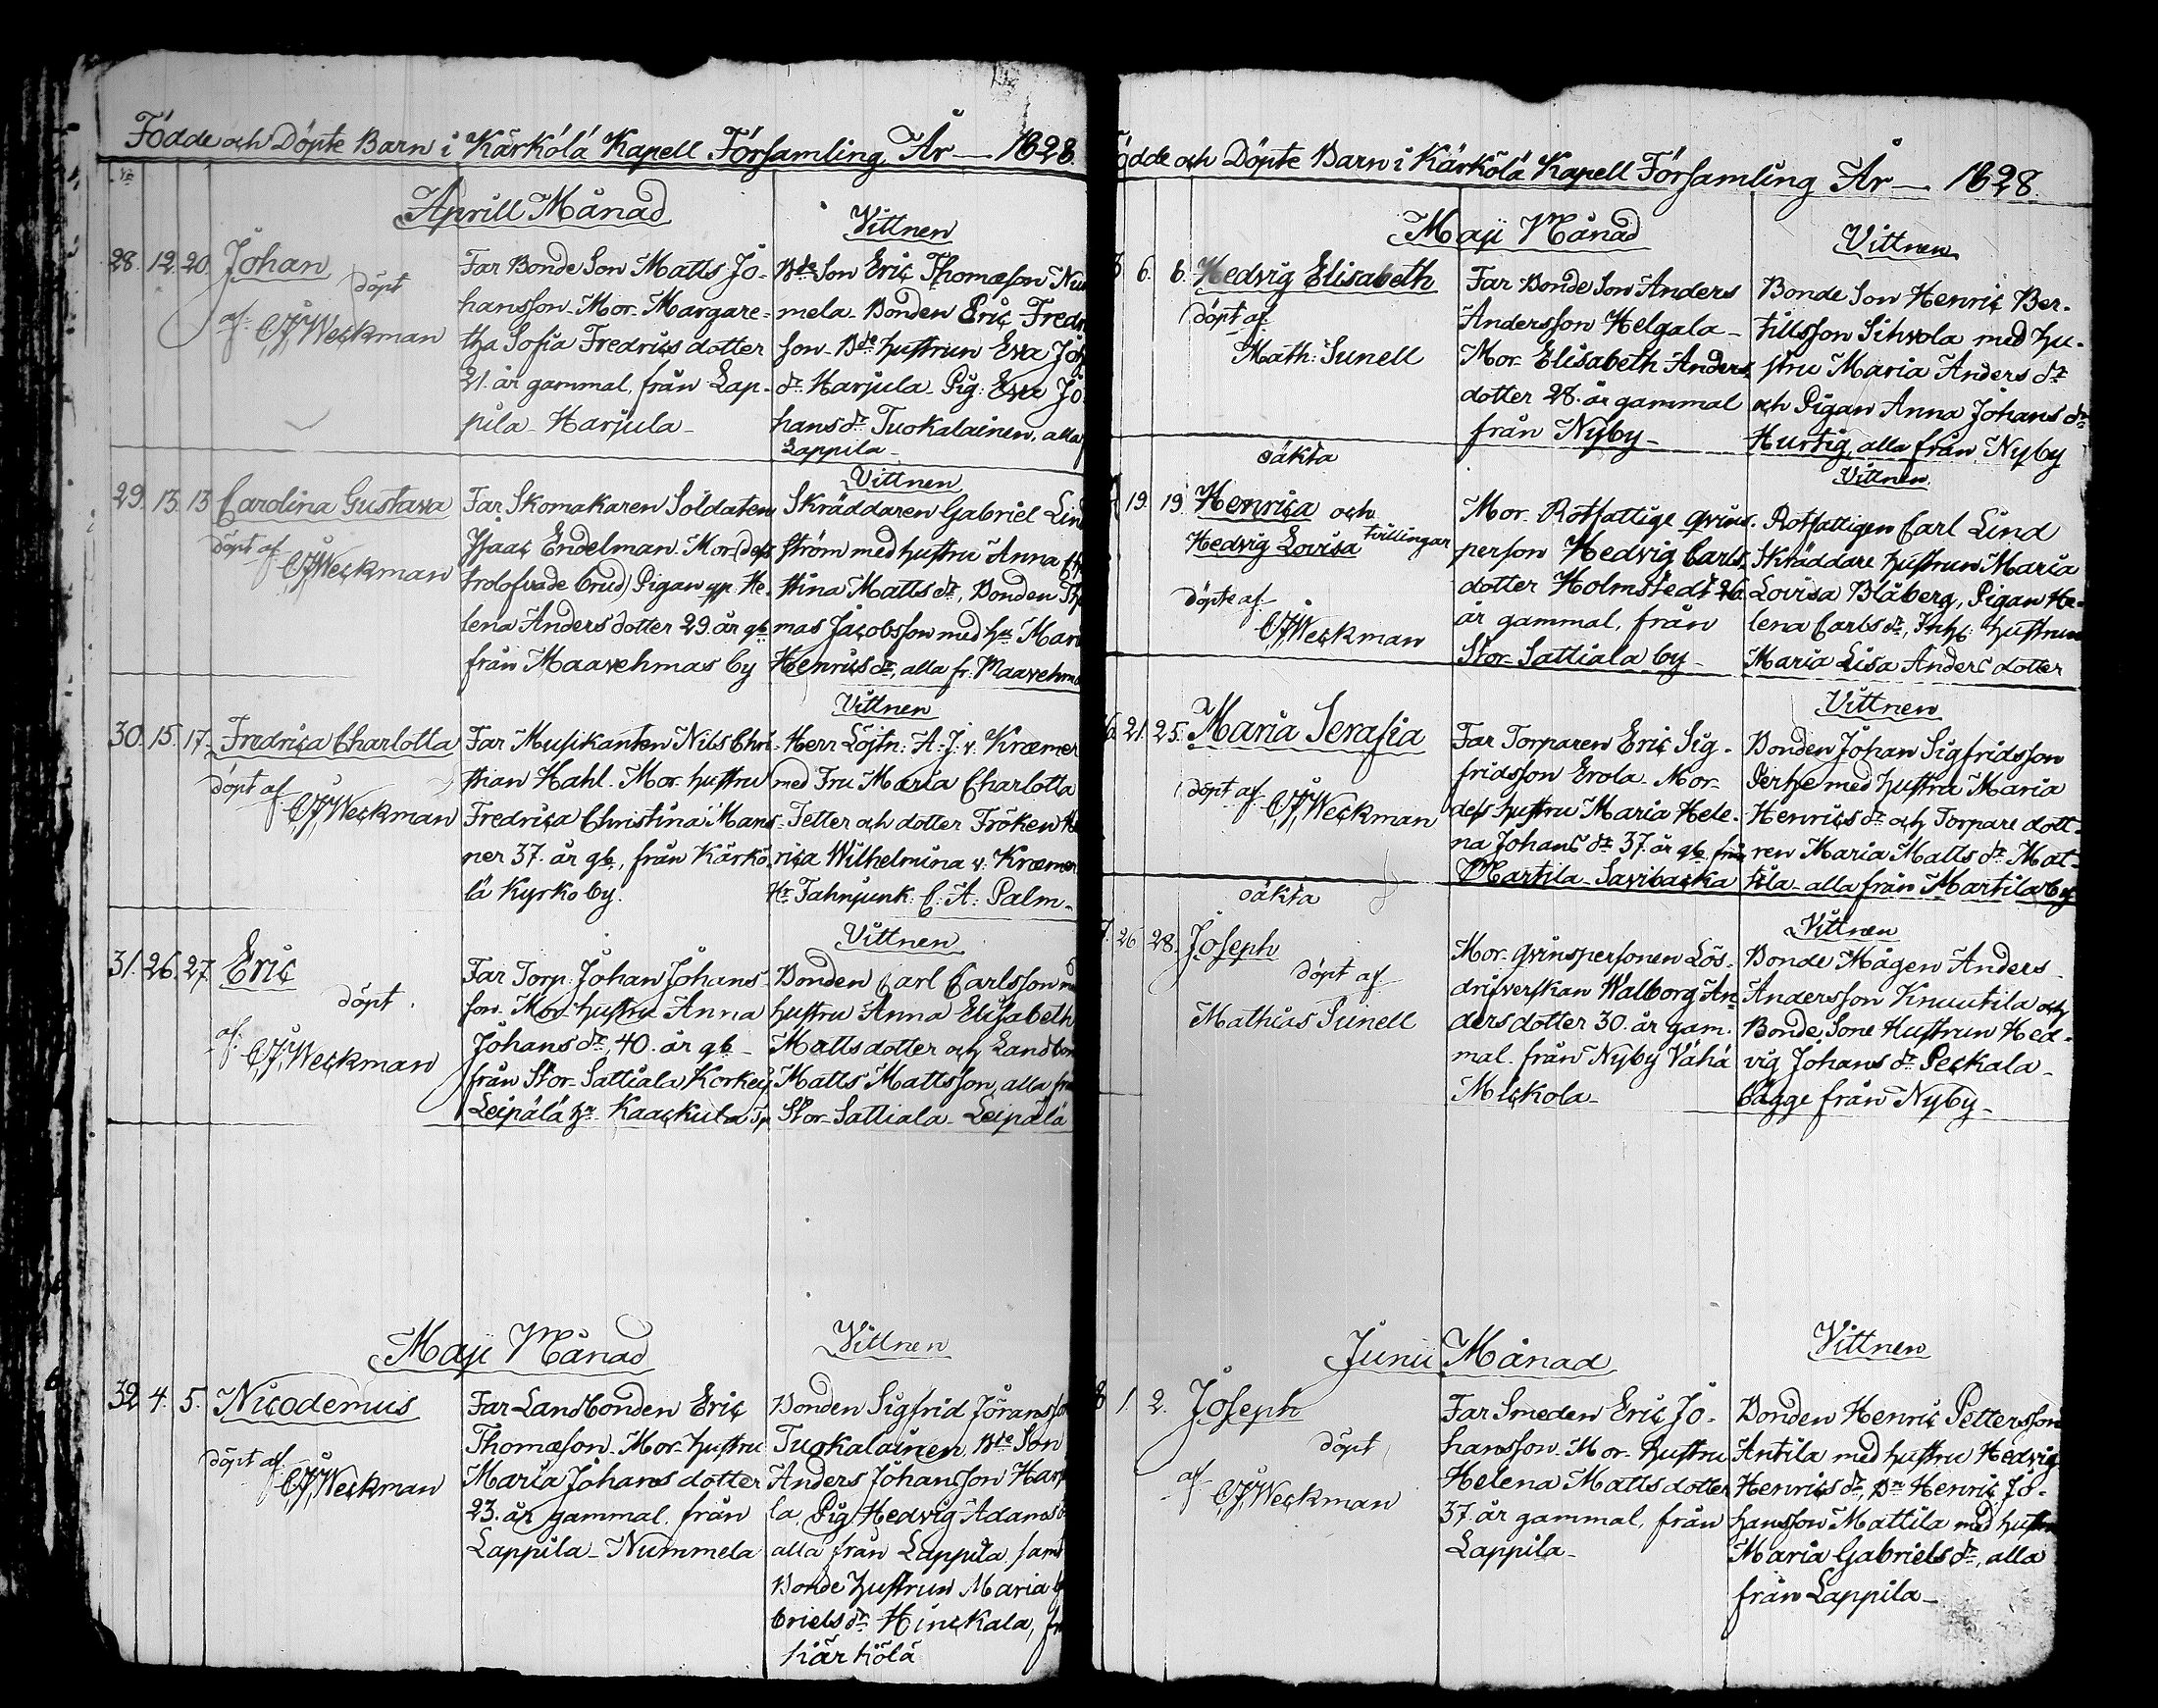 Födde och Döpte Barn i Kärkölä Kapell Församling År — 1828.
No
Aprill Månad
Vittnen
28. 12. 20. Johan
döpt
af CJWeckman
Far Bonde Son Matts Jo-
hansson. Mor. Margare-
tha Sofia Fredrics dotter
21. år gammal, från Lap-
pila Harjula
Bde Son Eric Thomæson
mela. Bonden Eric
son. Bde hustrun Eva
dr Harjula. Pig: Eva Jo
hans dr Tuokalainen, alla
Lappila
29. 13. 13 Carolina Gustava
döpt af
CJWeckman
Far Skomakaren Soldaten
Isaac Endelman. Mor (dess
trolofvade brud) Pigan qp. He-
lena Anders dotter 29. år gl
från Maavehmas by
Vittnen
Skräddaren Gabriel
ström med hustru Anna
stina Matts dr, Bonden
mas Jacobsson med hu
Henrics dr, alla fr.
30. 15. 17. Fredrica Charlotta
döpt af
CJWeckman
Far Musikanten Nils Chri-
stian Hahl. Mor. hustru
Fredrica Christina Mans-
ner 37. år gl, från Kärkö-
lä Kyrko by.
Vittnen
Herr Löjtn: A: J: v. Kræmer
med Fru Maria Charlotta
Tetter och dotter Fröken
rica Wilhelmina v. Kræmer
Hr Fahnjunk: C: A: Palm
31. 26. 27. Eric
döpt.
af CJWeckman
Far Torp: Johan Johans
son. Mor hustru Anna
Johans dr, 40. år gl
från Stor Sattiala
Leipälä hn Kaackula Tp
Vittnen
Bonden Carl Carlsson
hustru Anna Elisabeth
Matts dotter och
Matts Mattsson, alla
Stor Sattiala Leipälä
Maji Månad
Vittnen
32 4. 5. Nicodemus
döpt af
CJWeckman
Far Landbonden Eric
Thomæson. Mor. hustru
Maria Johans dotter
23. år gammal. från
Lappila Nummela
Bonden Sigfrid
Tuokalainen, Bde Son
Anders Johansson
la, Pig Hedvig Adams
alla från Lappila. samt
Bonde hustrun Maria
briels dr Hinckala,
Kärkölä
Födde och Döpte Barn i Kärkölä Kapell Församling År — 1828.
Maji Månad
Vittnen
6. 6. Hedvig Elisabeth
döpt af
Math: Sunell
Far Bonde Son Anders
Andersson Helgala
Mor. Elisabeth Anders
dotter 28. år gammal
från Nyby
Bonde Son Henric Ber-
tillsson Sihvola med hu-
stru Maria Anders dr
och Pigan Anna Johans dr
Hurtig, alla från Nyby
oäkta
19. 19. Henrica och
Hedvig Lovisa tvillingar
döpte af
CJWeckman
Mor. Rotfattige qvins-
person Hedvig Carls
dotter Holmstedt 26
år gammal, från
Stor Sattiala by
Vittnen
Rotfattigen Carl Lind
Skräddare hustrun Maria
Lovisa Blåberg, Pigan He-
lena Carls dr, Inh: hustrun
Maria Lisa Anders dotter
21. 25. Maria Serafia
döpt af CJWeckman
Far Torparen Eric Sig-
fridsson Erola. Mor
dess hustru Maria Hele-
na Johans dr 37. år gl från
Martila Savibacka
Vittnen
Bonden Johan Sigfridsson
Perhe med hustru Maria
Henrics dr och Torpare dott-
ren Maria Matts dr Mat-
tila alla från Martila by
oäkta
26 28. Joseph
döpt af
Mathias Sunell
Mor. qvinspersonen Lös-
drifverskan Walborg An-
ders dotter 30. år gam-
mal. från Nyby Vähä
Mickola
Vittnen
Bonde Mågen Anders
Andersson Knuutila och
Bonde Sone Hustrun Hed-
vig Johans dr Peckala
bägge från Nyby
Junii Månad
Vittnen
1. 2. Joseph
döpt
af CJWeckman
Far Smeden Eric Jo-
hansson. Mor. hustru
Helena Matts dotter
37. år gammal, från
Lappila
Bonden Henric Pettersson
Antila med hustru Hedvig
Henrics dr, Bn Henric Jo-
hansson Mattila med hustru
Maria Gabriels dr, alla
från Lappila